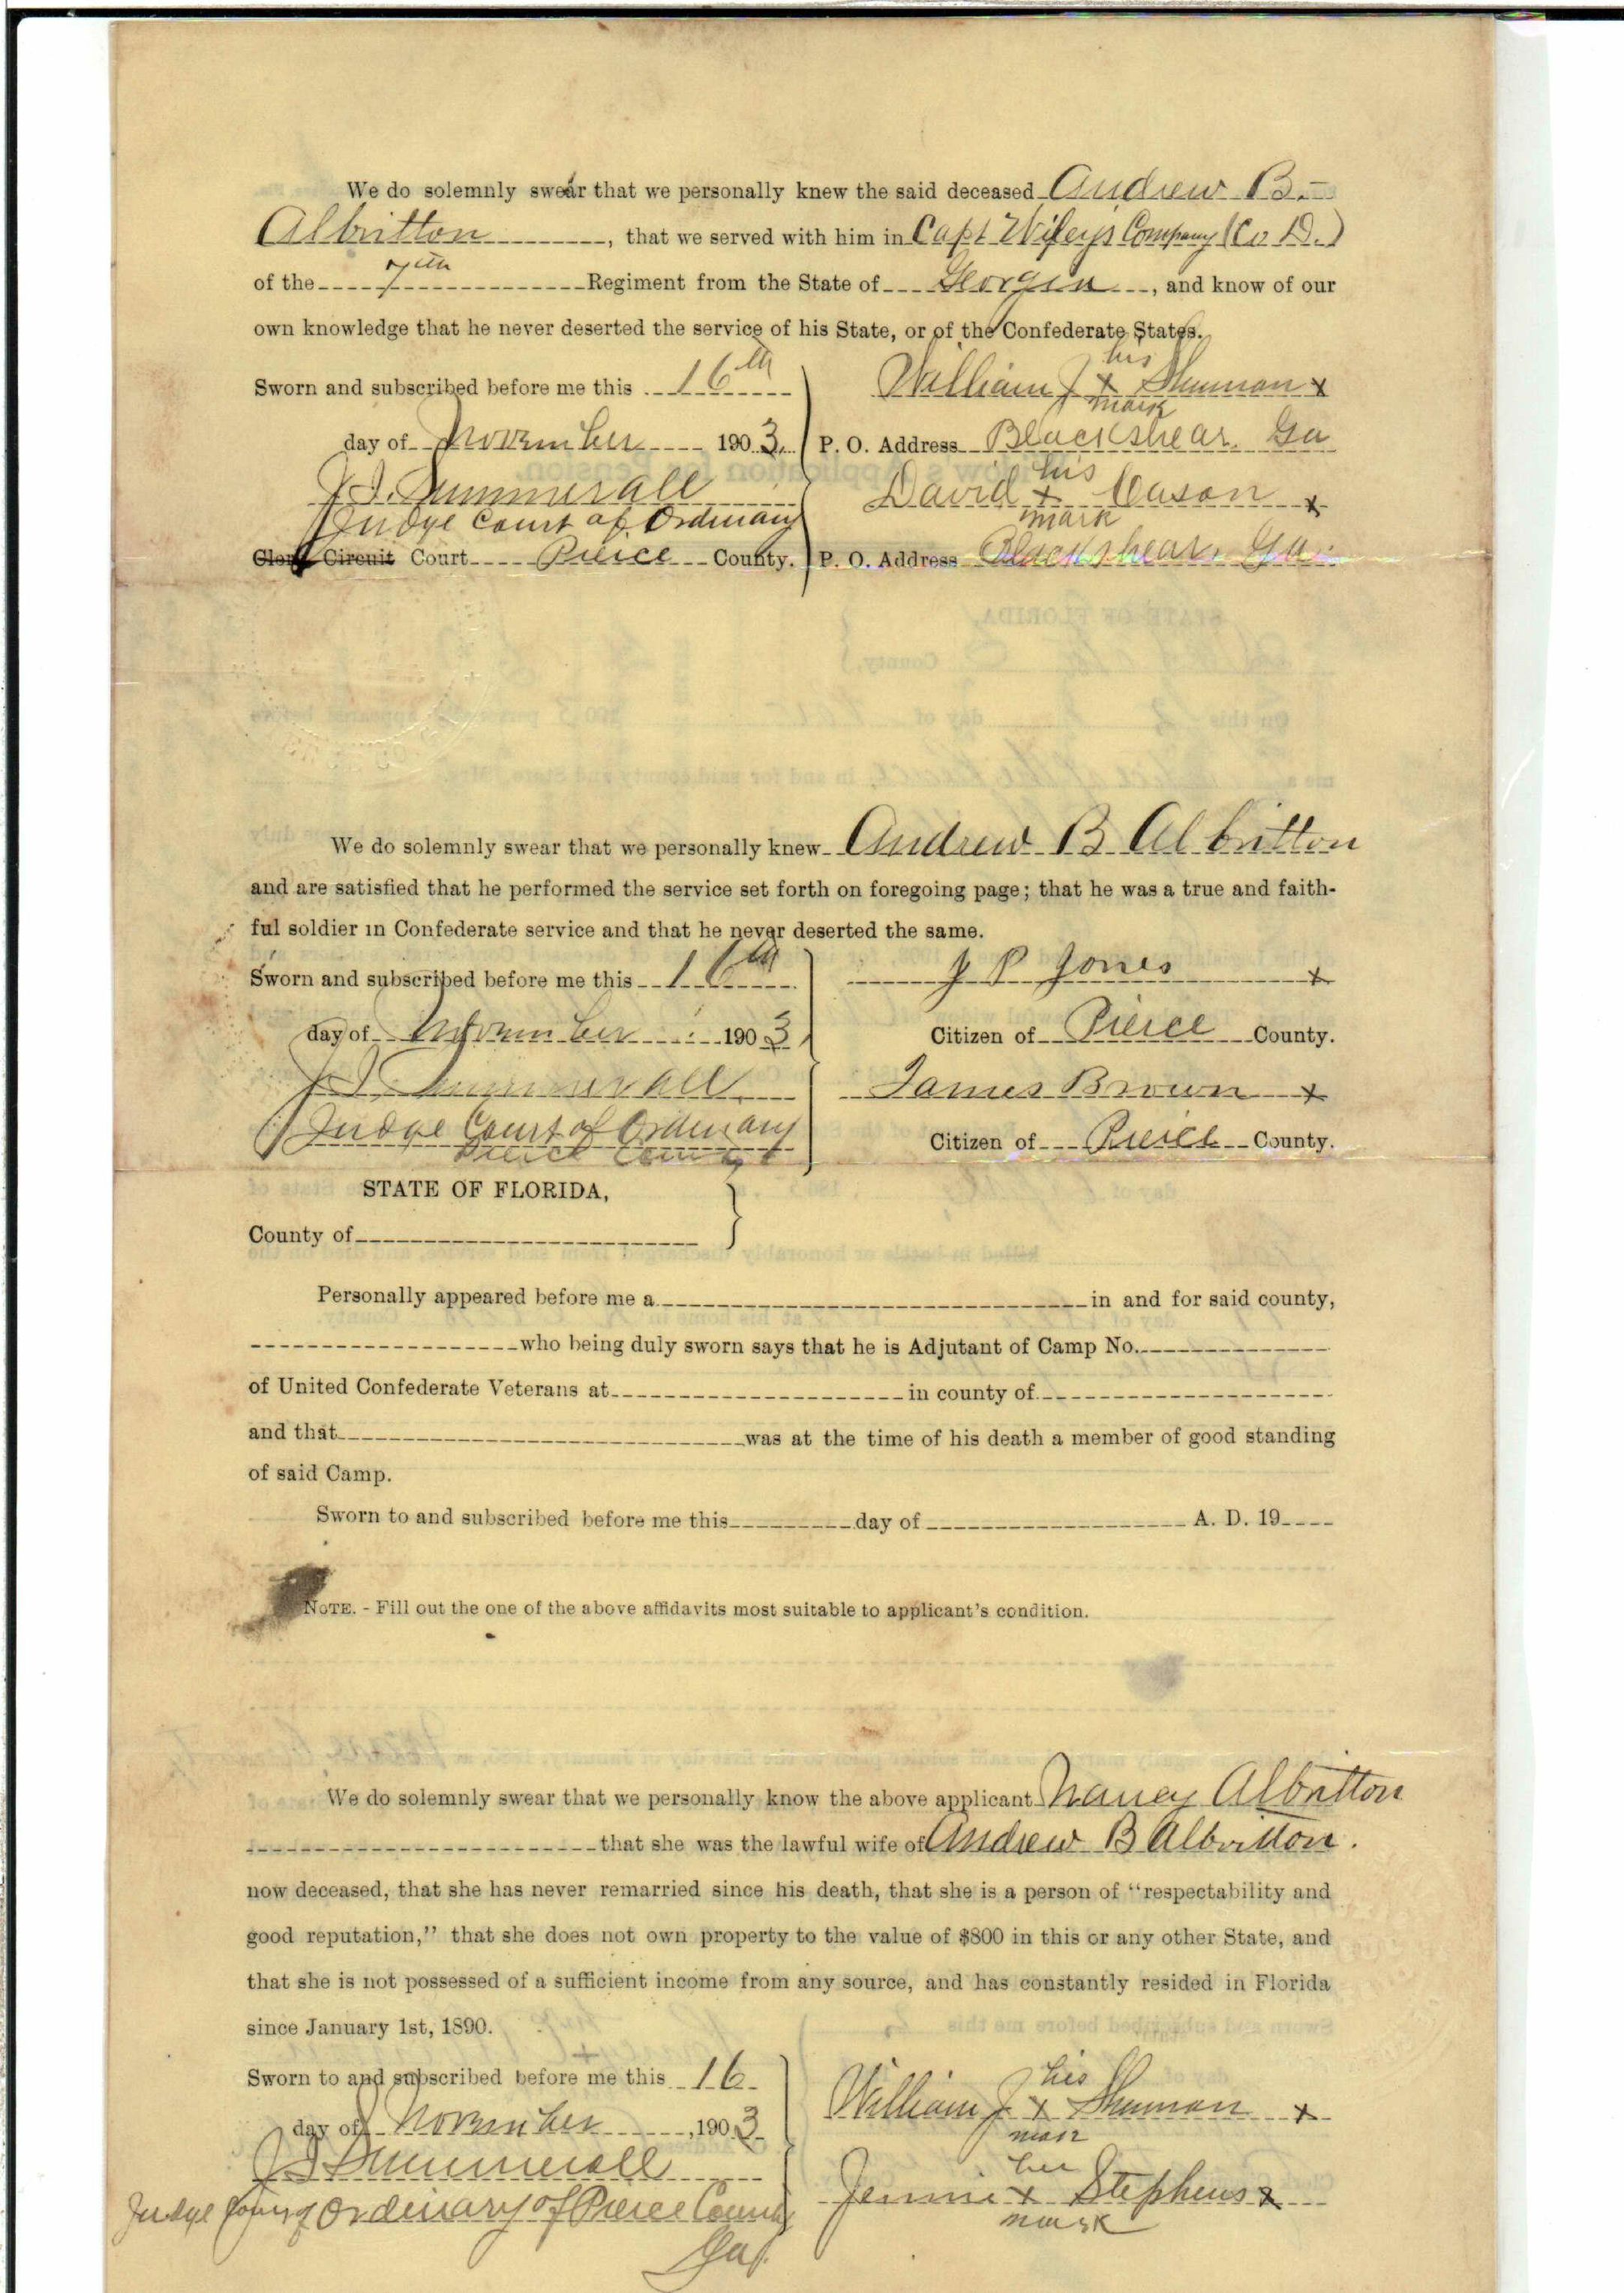 We do solemnly swear that we personally knew the said deceased Andrew B.
Albritton, that we served with him in Capt Wifeys Company (Co D.)
of the 7th Regiment from the State of Georgia, and know of our
own knowledge that he never deserted the service of his State, or of the Confederate States.
Sworn and subscribed before me this 16th
day of November 1903.
J. I. Summerall
Judge Court of Ordinary
Clerk Circuit Court Pierce County.
his
William J x Shuman x
mark
P. O. Address Blackshear. Ga
his
David x Cason x
mark
P. O. Address Blackshear, Ga.
We do solemnly swear that we personally knew Andrew B Albritton
and are satisfied that he performed the service set forth on foregoing page; that he was a true and faith-
ful soldier in Confederate service and that he never deserted the same.
Sworn and subscribed before me this 16th
day of November 1903
J I Summerall
Judge Court of Ordinary
Pierce County
J P Jones x
Citizen of Pierce County.
James Brown x
Citizen of Pierce County.
STATE OF FLORIDA,
County of
Personally appeared before me a in and for said county,
who being duly sworn says that he is Adjutant of Camp No.
of United Confederate Veterans at in county of
and that was at the time of his death a member of good standing
of said Camp.
Sworn to and subscribed before me this day of A. D. 19
NOTE. - Fill out the one of the above affidavits most suitable to applicant's condition.
We do solemnly swear that we personally know the above applicant Nancy Albritton
that she was the lawful wife of Andrew B Albritton.
now deceased, that she has never remarried since his death, that she is a person of "respectability and
good reputation," that she does not own property to the value of $800 in this or any other State, and
that she is not possessed of a sufficient income from any source, and has constantly resided in Florida
since January 1st, 1890.
Sworn to and subscribed before me this 16
day of November, 1903
J I Summerall
Judge Court of Ordinary of Pierce County
Ga.
his
William J x Shuman x
mark
her
Jennie x Stephens x
mark